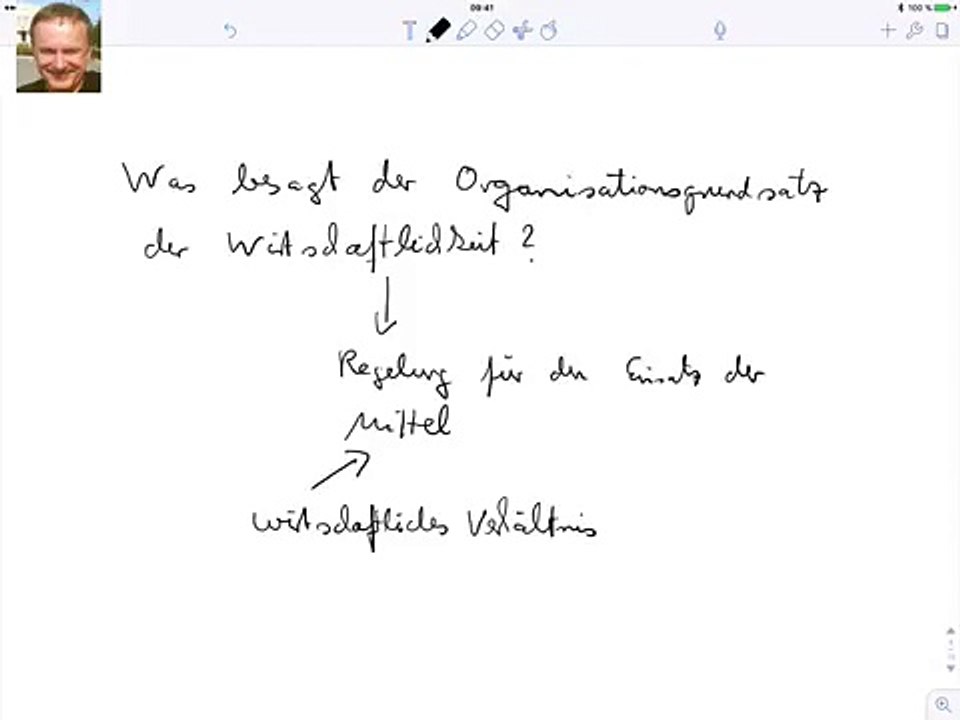 09:41
100 %
T
Was besagt der Organisationsgrundsatz
der Wirtschaftlichkeit ?
Regelung für den Einsatz der
Mittel
wirtschaftliches Verhältnis